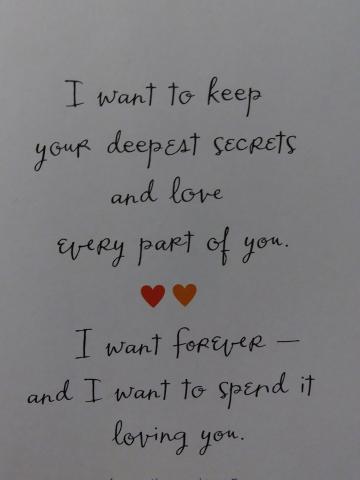 I want to keep
your deepest secrets
and love
every part of you.
I want forever —
and I want to spend it
loving you.